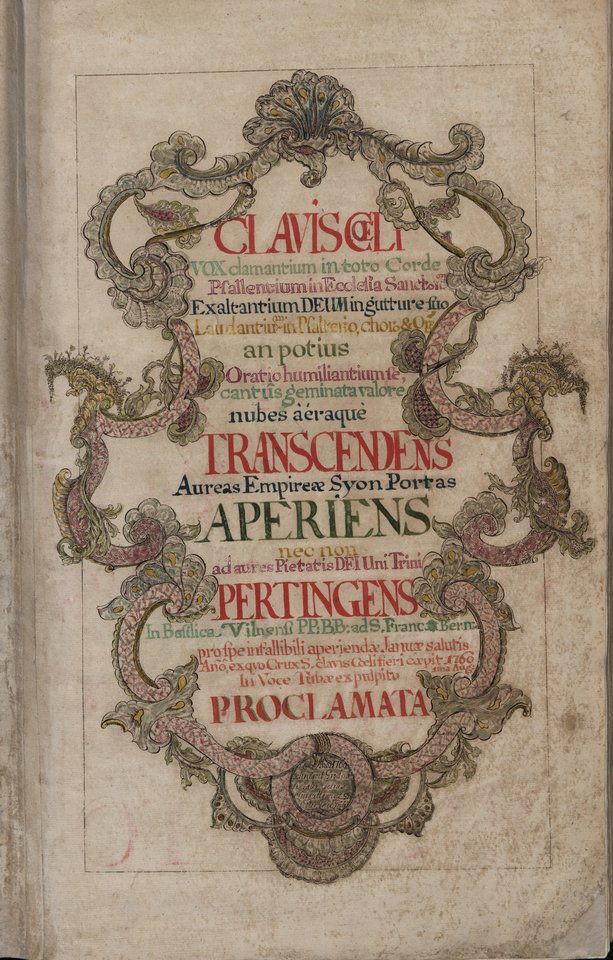 CLAVIS CŒLI
VOX clamantium in toto Corde
Psallentium in Ecclesia
Exaltantium DEUM in gutture suo
in Psalterio, choro &
an potius
Oratio humiliantium se,
cantus geminata valore
nubes aëraque
TRANSCENDENS
Aureas Empireæ Syon Portas
APERIENS
nec non
ad aures Pietatis DEI Uni Trini
PERTINGENS
In Basilica Vilnensi PP. BB. ad S. Franc. & Bern.
pro spe infallibili aperiendæ Januæ salutis
Año, ex quo Crux S. clavis Cœli fieri cœpit 1766
In Voce Tubæ ex pulpitu
PROCLAMATA